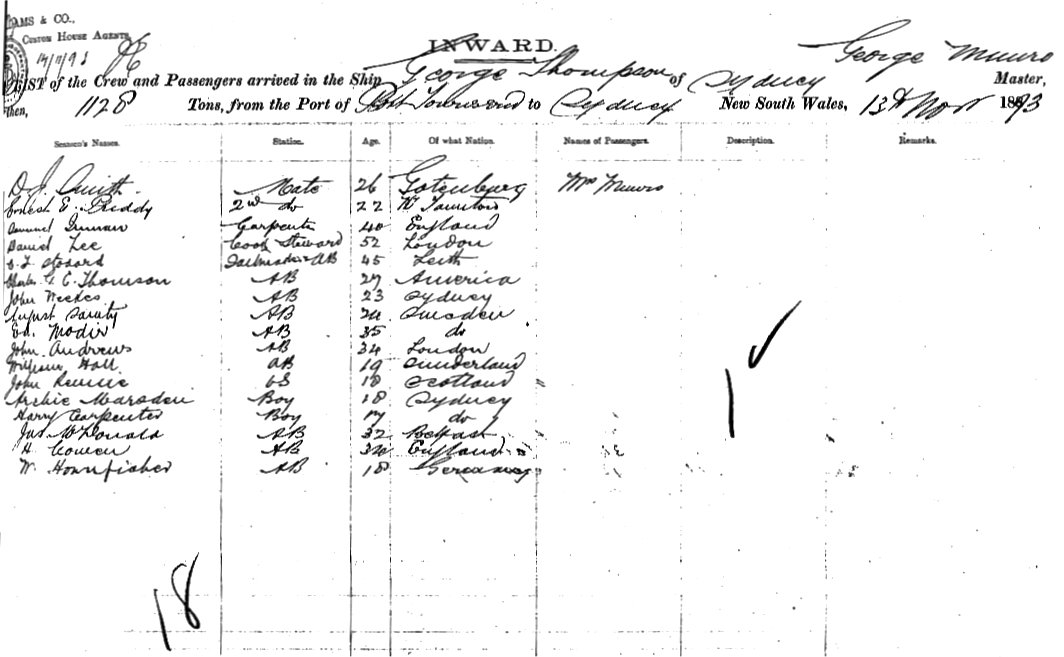 AMS & CO.,
CUSTOM HOUSE AGENTS
14/11/93
INWARD.
George Munro
LIST of the Crew and Passengers arrived in the Ship George Thompson of Sydney Master,
then, 1128 Tons, from the Port of Port Townsend to Sydney New South Wales, 13th Nov 1893
Seamen's Names. Station. Age. Of what Nation. Names of Passengers. Description. Remarks.
D. J. Smith Mate 26 Gotenburg Mrs Munro
Ernest E. Priddy 2nd do 22 Taunton
Inman Carpenter 40 England
Daniel Lee Cook Steward 52 London
Stodard Sailmaker AB 45 Leith
Charles G. C. Thomson AB 27 America
John Weekes AB 23 Sydney
August AB Sweden
Ed. Modir AB 35 do
John Andrews AB 34 London
William Hall AB 19 Sunderland
John Rennie OS 18 Scotland
Archie Marsden Boy 18 Sydney
Harry Carpenter Boy 17 do
Jas McDonald AB 32 Belfast
H Cowen AB England
W. Hornfisher AB 18 Germany
1
18